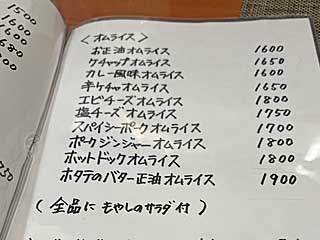 1500
1600
1600
1680
<オムライス>
お正油オムライス 1600
ケチャップオムライス 1650
カレー風味オムライス 1600
辛ケチャオムライス 1650
エビチーズオムライス 1800
塩チーズオムライス 1750
スパイシーポークオムライス 1700
ポークジンジャーオムライス 1800
ホットドックオムライス 1800
ホタテのバター正油オムライス 1900
(全品に もやしのサラダ付)